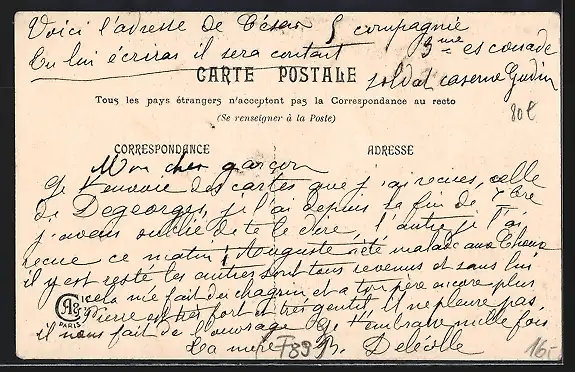 Voici l'adresse de César 5 compagnie
3me escouade
Tu lui écriras il sera contant
soldat caserne Gudin
CARTE POSTALE
80t
Tous les pays étrangers n'acceptent pas la Correspondance au recto
(Se renseigner à la Poste)
CORRESPONDANCE
ADRESSE
Mon cher garçon
Je t'envoie des cartes que j'ai recues, celle
de Degeorges, je l'ai depuis la fin de 7bre
j'avais oublié de te le dire, l'autre je l'ai
recue ce matin Auguste été malade aux
il y est resté les autres sont tous revenus et sans lui
cela m'a fait du chagrin et a ton père encore plus
Pierre est très fort et très gentil il ne pleure pas
il nous fait de l'ouvrage Je t'embrasse mille fois
ta mère
PARIS
16-